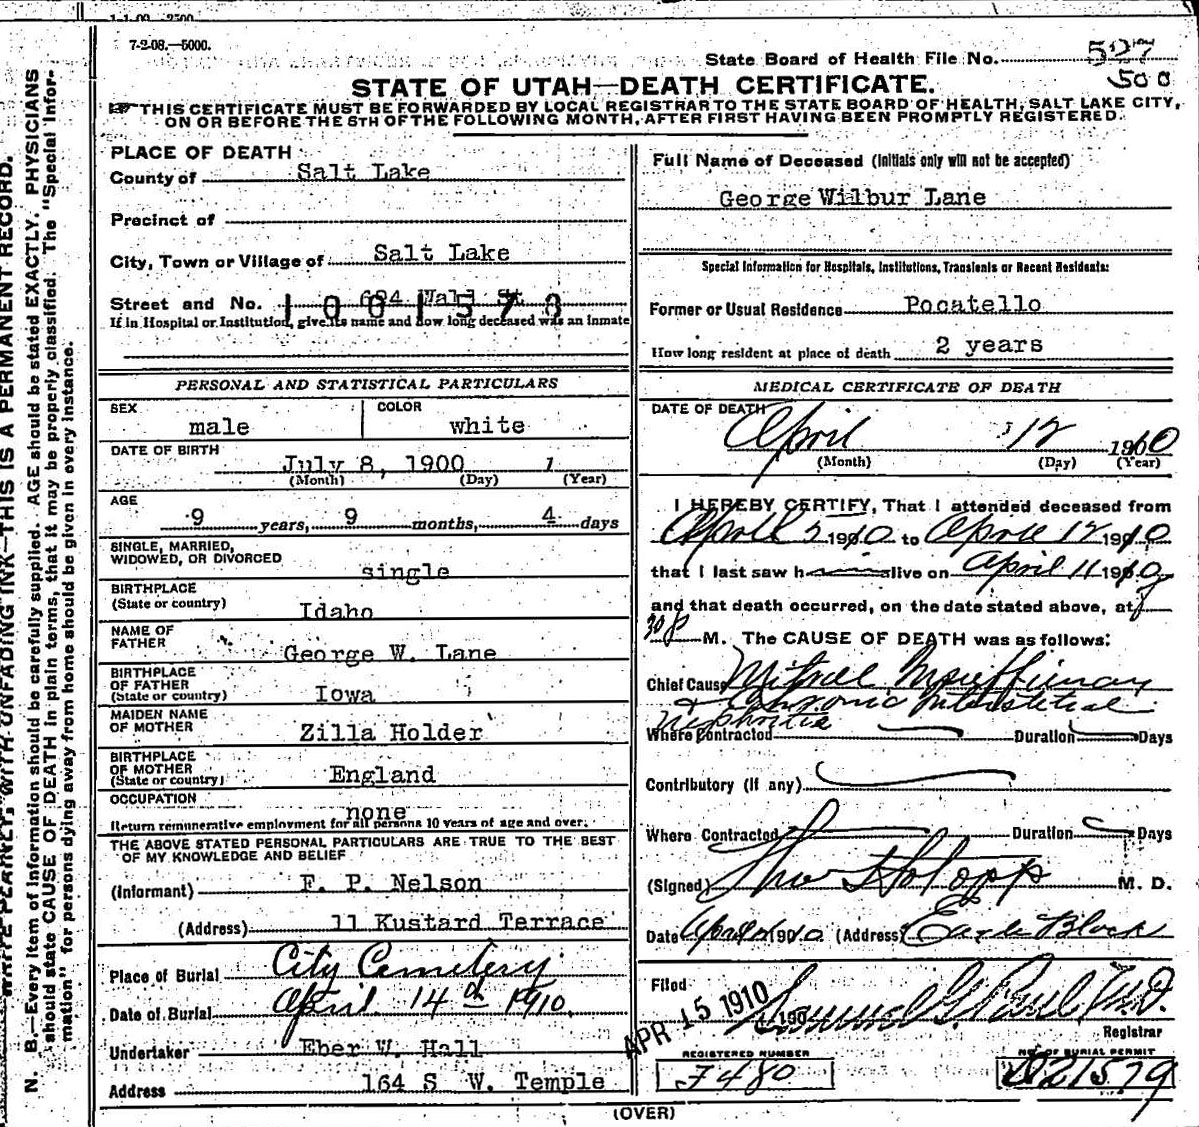 1-1-09 2500
7-2-08.—5000.
State Board of Health File No. 527
500
STATE OF UTAH—DEATH CERTIFICATE.
THIS CERTIFICATE MUST BE FORWARDED BY LOCAL REGISTRAR TO THE STATE BOARD OF HEALTH, SALT LAKE CITY,
ON OR BEFORE THE 5TH OF THE FOLLOWING MONTH, AFTER FIRST HAVING BEEN PROMPTLY REGISTERED.
N. B.—Every item of information should be carefully supplied. AGE should be stated EXACTLY. PHYSICIANS
should state CAUSE OF DEATH in plain terms, that it may be properly classified. The "Special Infor-
mation" for persons dying away from home should be given in every instance.
WRITE PLAINLY, WITH UNFADING INK—THIS IS A PERMANENT RECORD.
PLACE OF DEATH
County of Salt Lake
Precinct of
City, Town or Village of Salt Lake
Street and No. Wall St
1001578
If in Hospital or Institution, give its name and how long deceased was an inmate
PERSONAL AND STATISTICAL PARTICULARS
SEX male
COLOR white
DATE OF BIRTH
July 8, 1900 1
(Month) (Day) (Year)
AGE
9 years, 9 months, 4 days
SINGLE, MARRIED,
WIDOWED, OR DIVORCED single
BIRTHPLACE
(State or country) Idaho
NAME OF
FATHER George W. Lane
BIRTHPLACE
OF FATHER
(State or country) Iowa
MAIDEN NAME
OF MOTHER Zilla Holder
BIRTHPLACE
OF MOTHER
(State or country) England
OCCUPATION
none
Return remunerative employment for all persons 10 years of age and over.
THE ABOVE STATED PERSONAL PARTICULARS ARE TRUE TO THE BEST
OF MY KNOWLEDGE AND BELIEF
(Informant) F. P. Nelson
(Address) 11 Kustard Terrace
Place of Burial City Cemetery
Date of Burial April 14th 1910
Undertaker Eber W. Hall
Address 164 S W. Temple
Full Name of Deceased (Initials only will not be accepted)
George Wilbur Lane
Special Information for Hospitals, Institutions, Transients or Recent Residents:
Former or Usual Residence Pocatello
How long resident at place of death 2 years
MEDICAL CERTIFICATE OF DEATH
DATE OF DEATH
April 12 1910
(Month) (Day) (Year)
I HEREBY CERTIFY, That I attended deceased from
April 5 1910 to April 12 1910
that I last saw him alive on April 11 1910
and that death occurred, on the date stated above, at
M. The CAUSE OF DEATH was as follows:
Chief Cause Mitral Insufficiency
Chronic Interstitial
Nephritis
Where Contracted Duration Days
Contributory (if any)
Where Contracted Duration Days
(Signed) M. D.
Date April 1910 (Address) Eagle Block
Filed APR 15 1910 190 Samuel G. Paul, M.D.
Registrar
REGISTERED NUMBER
F480
NO. OF BURIAL PERMIT
21579
(OVER)